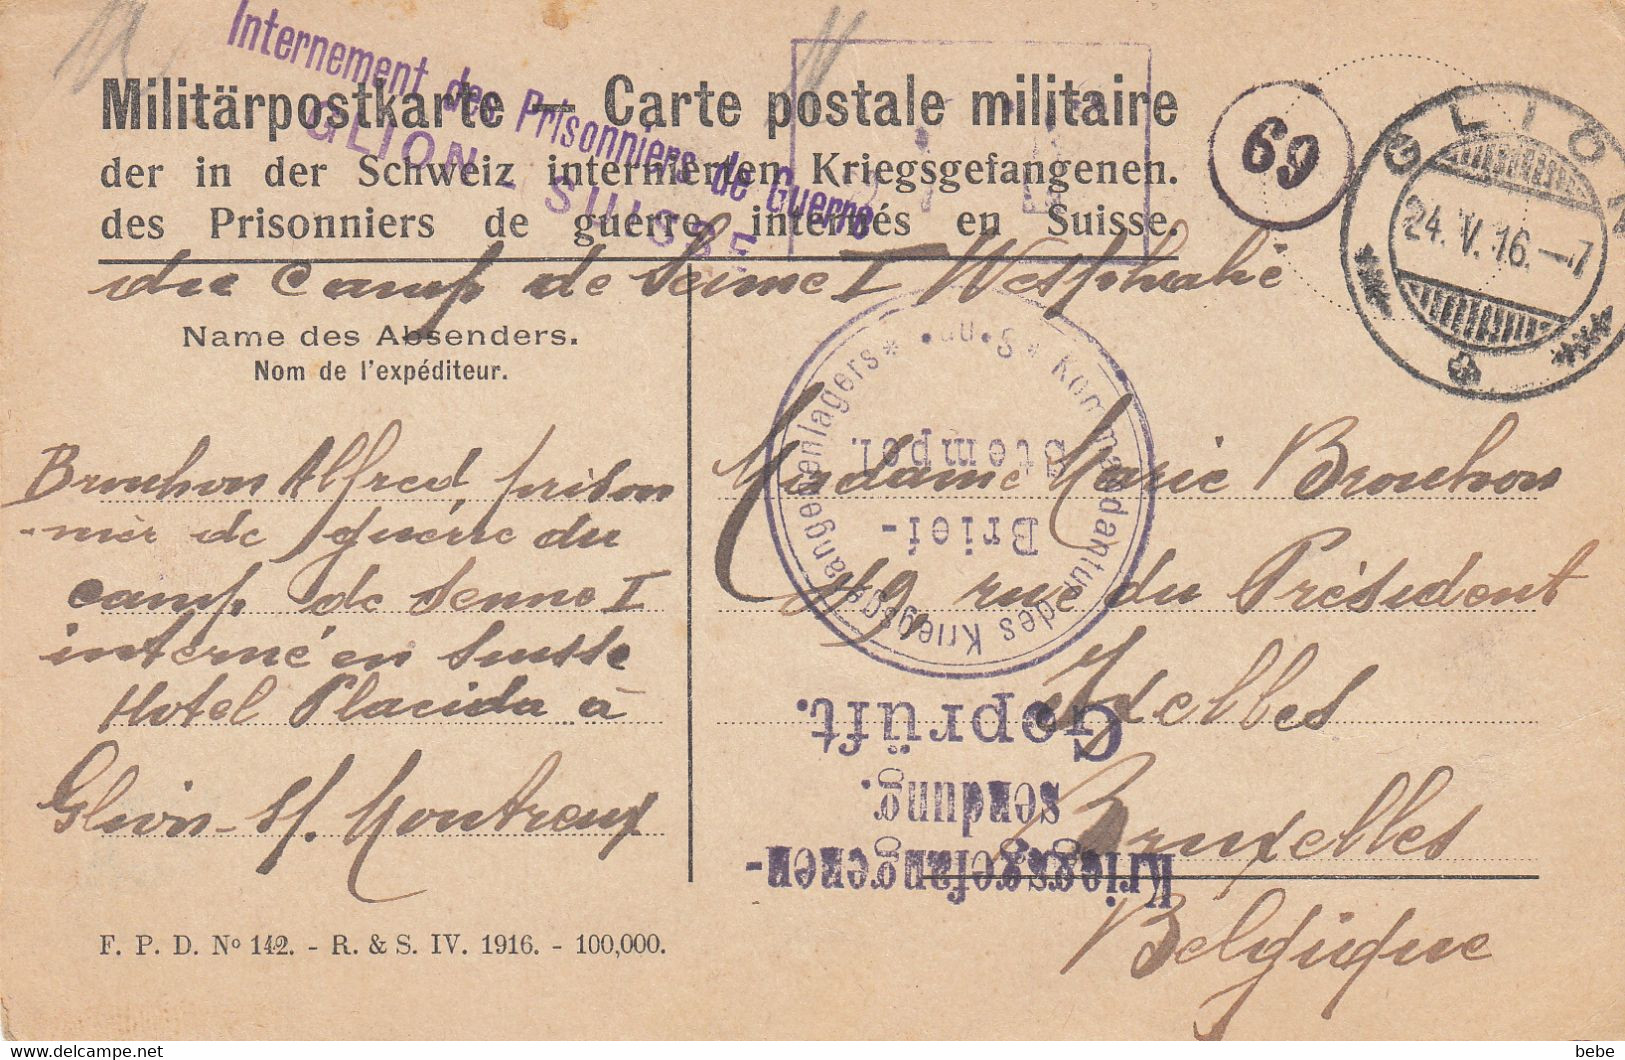 Internement des Prisonniers de Guerre
GLION - SUISSE
Militärpostkarte — Carte postale militaire
der in der Schweiz internierten Kriegsgefangenen.
des Prisonniers de guerre internés en Suisse.
69
GLION
24. V. 16. — 7
du Camp de Senne I Westphalie
Name des Absenders.
Nom de l'expéditeur.
Brouhon Alfred, prison
-nier de guerre du
camp de Senne I
interné en Suisse
Hotel Placida à
Glion s/. Montreux
Kommandantur des Kriegsgefangenenlagers
Brief-
Stempel.
Madame Marie Brouhon
49 rue du Président
Ixelles
Bruxelles
Belgique
Geprüft.
Kriegsgefangenen-
sendung.
F. P. D. Nº 142. - R. & S. IV. 1916. - 100,000.
delcampe.net
bebe